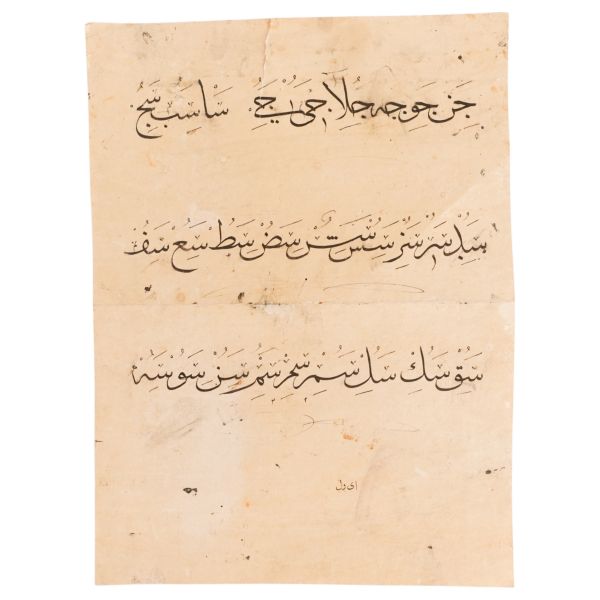 جن جو جه جلا جى جے سا سب سج
سد سر سز سس سش سص سط سع سف
سق سك سل سم سم سم سن سو سه
اى دل